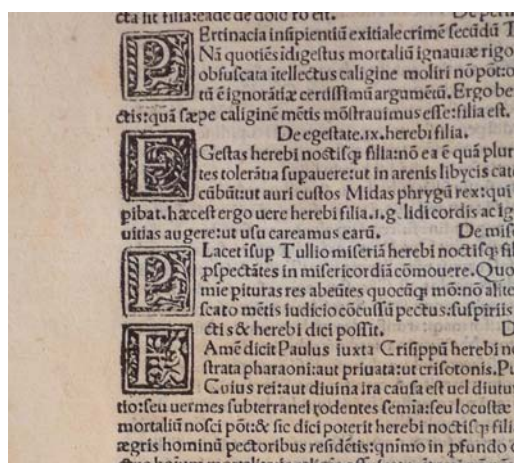 cta sit filia:eadē de dolo ro eit.
Ertinacia insipientiū exitiale crimē secūdū T
Nā quotiēs īdigestus mortaliū ignauiæ rigo
obfuscata ītellectus caligine moliri nō pōt:o
tū ē ignorātiæ certissimū argumētū. Ergo be
ctis:quā sæpe caliginē mētis mōstrauimus esse:filia est.
De egestate.ix.herebi filia.
Gestas herebi noctisqȝ filia:nō ea ē quā plur
tes tolerātia supauere:ut in arenis libycis cat
cūbūt:ut auri custos Midas phrygū rex:qui
pibat.hæc est ergo uere herebi filia.i.g lidi cordis ac ig
uitias augere:ut usu careamus earū. De mise
P Lacet isup Tullio miseriā herebi noctisqȝ fil
pspectātes in misericordiā cōmouere.Quo
mie pituras res abeūtes quocūqȝ mō:nō alite
scato mētis iudicio cōcussū pectus:suspiriis
ctis & herebi dici possit. D
F Amē dicit Paulus iuxta Crisippū herebi no
strata pharaoni:aut priuata:ut erisotonis.Pu
Cuius rei:aut diuina ira causa est uel diutur
tio:seu uermes subterranei rodentes semīa:seu locustæ
mortaliū nosci pōt:& sic dici poterit herebi noctisqȝ fili
ægris hominū pectoribus residētis:qnimo in pfundo c